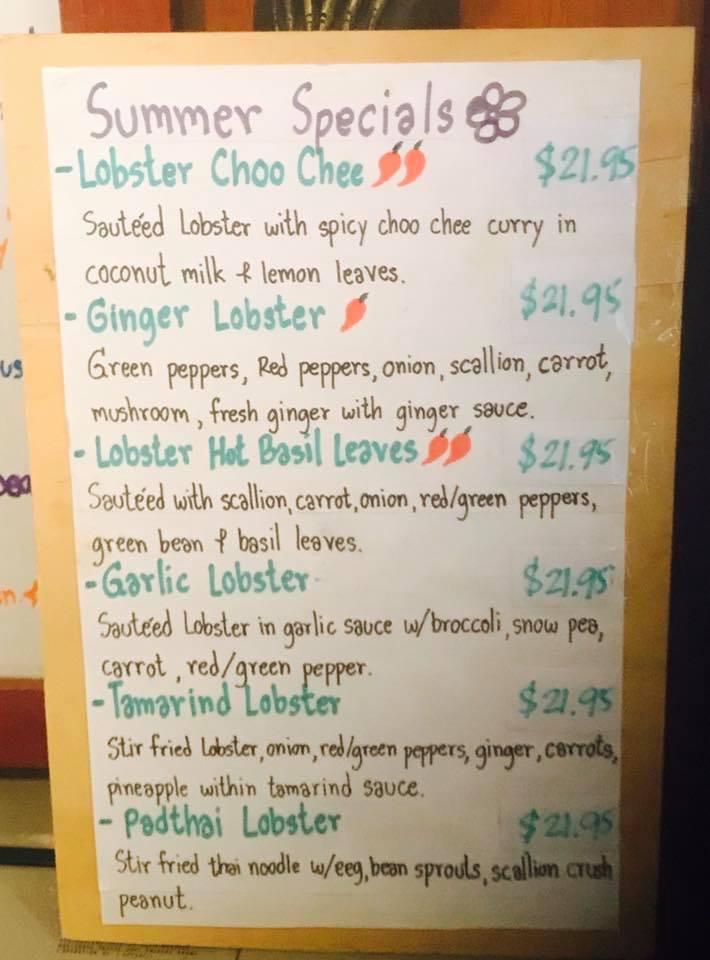 Summer Specials
-Lobster Choo Chee $21.95
Sauteéd Lobster with spicy choo chee curry in
coconut milk & lemon leaves.
- Ginger Lobster $21.95
Green peppers, Red peppers, onion, scallion, carrot,
mushroom, fresh ginger with ginger sauce.
- Lobster Hot Basil Leaves $21.95
Sauteéd with scallion, carrot, onion, red/green peppers,
green bean & basil leaves.
-Garlic Lobster $21.95
Sauteéd Lobster in garlic sauce w/broccoli, snow pea,
carrot, red/green pepper.
-Tamarind Lobster $21.95
Stir fried Lobster, onion, red/green peppers, ginger, carrots,
pineapple within tamarind sauce.
- Padthai Lobster $21.95
Stir fried thai noodle w/eeg, bean sprouts, scallion crush
peanut.